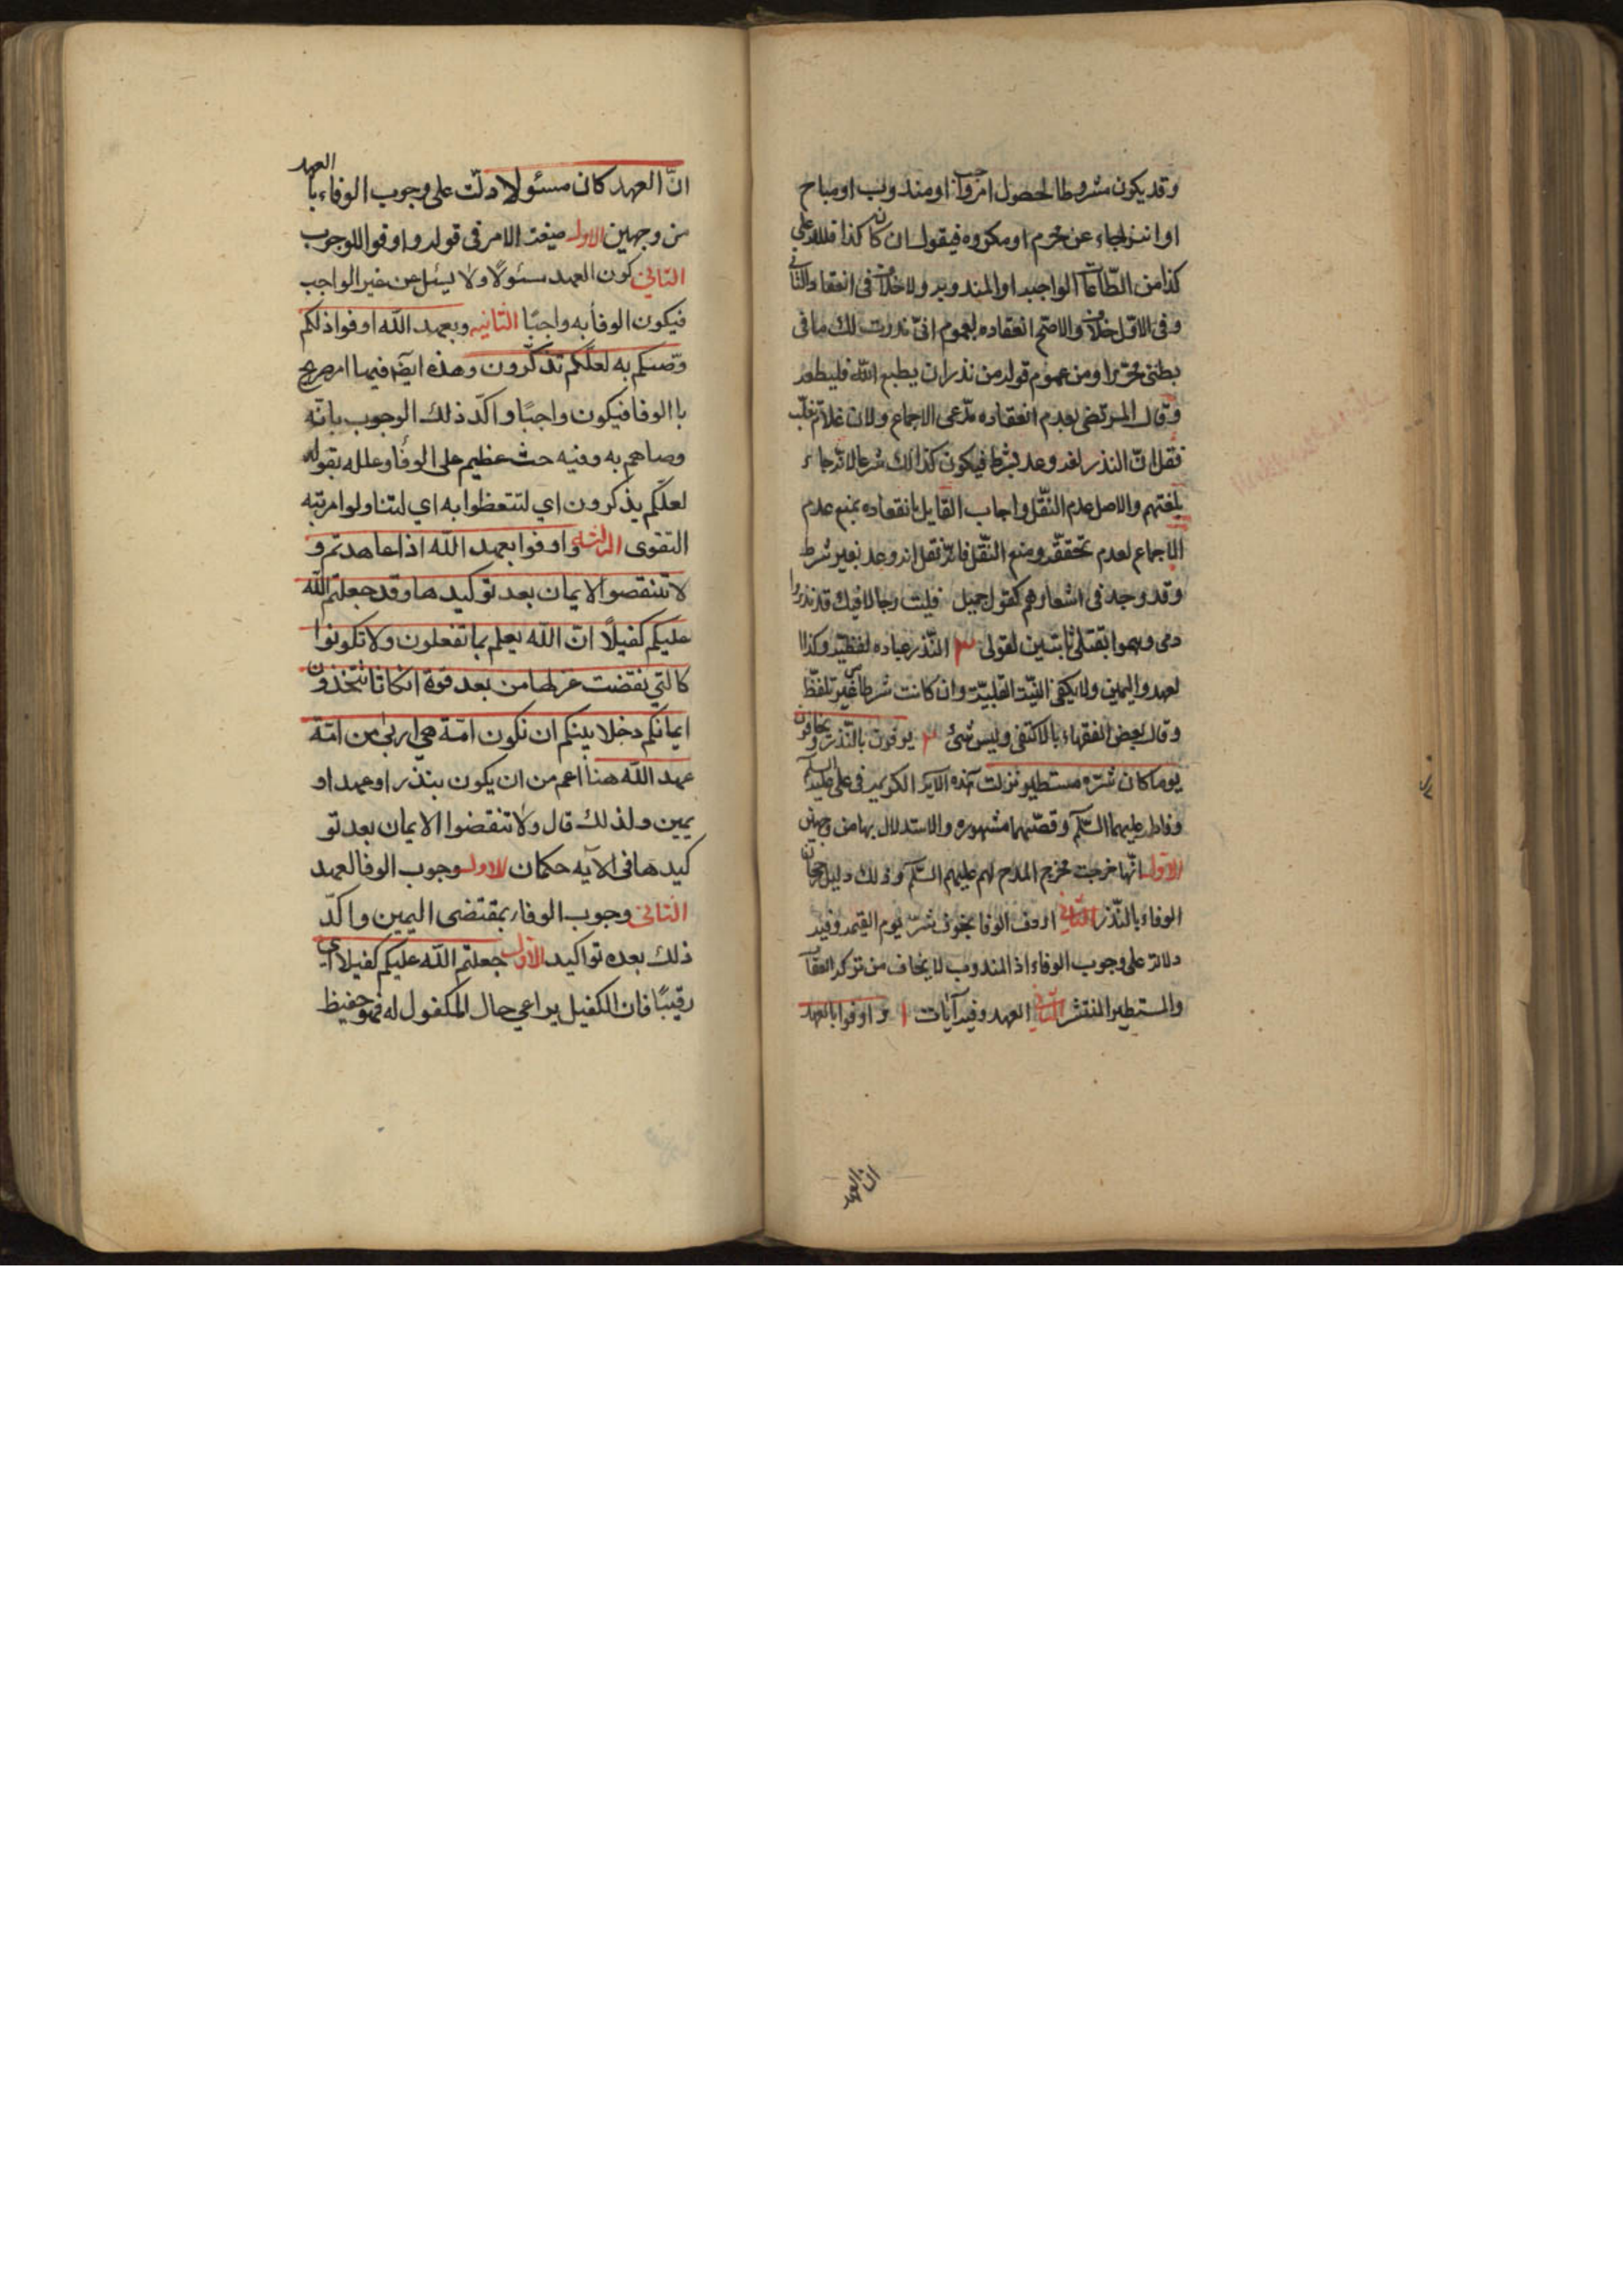 وقد يكون مشروطا لحصول امر واجب او مندوب او مباح
او انزجاء عن محرم او مكروه فيقول ان كان كذا فلله على
كذا من الطاعات الواجبه او المندوبه ولا خلاف فى انعقاد الثانى
وفى الاول خلاف والاصح انعقاده لعموم انى نذرت لك ما فى
بطنى محررا ومن عموم قوله من نذر ان يطيع الله فليطعه
وقال المرتضى بعدم انعقاده مدعى الاجماع ولان غلام ثعلب
نقل ان النذر لغه وعد بشرط فيكون كذالك شرعا لانه جاء
بلغتهم والاصل عدم النقل واجاب القايل بانعقاده بمنع عدم
الاجماع لعدم تحققه ومنع النقل فانه نقل انه وعد بغير شرط
وقد وجد فى اشعارهم كقول جميل فليت رجالا فيك قد نذروا
دمى وهموا بقتلى يا بثين لقونى ٣ النذر عباده لفظيه وكذا ا
لعهد واليمين ولا يكفى النيه القلبيه وان كانت شرطا من غير تلفظ
وقال بعض الفقهاء بالاكتفى وليس بشئ ٣ يوفون بالنذر ويخافون
يوما كان شره مستطيرا نزلت هذه الايه الكريمه فى على عليه السلم
وفاطمه عليهما السلم وقصتهما مشهوره والاستدلال بها من وجهين
الاول انها خرجت مخرج المدح لهم عليهم السلم وذلك دليل رجحان
الوفاء بالنذر الثانى اردف الوفا بخوف شر يوم القيمه وفيه
دلاله على وجوب الوفاء اذ المندوب لا يخاف من تركه العقاب
والمستطير المنتشر الثانى العهد وفيه آيات ١ و اوفوا بالعهد
ان العهد
انّ العهد كان مسئولا دلّت على وجوب الوفاء بالعهد
من وجهين الاول صيغة الامر فى قوله واوفوا للوجوب
الثانى كون العهد مسئولًا ولا يسئل عن غير الواجب
فيكون الوفأ به واجبًا الثانيه وبعهد الله اوفوا ذلكم
وصّيكم به لعلّكم تذكّرون وهذه ايضا فيها امر صريح
با الوفا فيكون واجبًا واكّد ذلك الوجوب بانّه
وصاهم به وفيه حث عظيم على الوفأ وعلله بقوله
لعلّكم يذكرون اي لتتعظوا به اي لتناولوا مرتبه
التقوى الثالثه واوفوا بعهد الله اذا عاهدتم و
لا تنقصوا الايمان بعد توكيدها وقد جعلتم الله
عليكم كفيلًا انّ الله يعلم بما تفعلون ولا تكونوا
كالتي نقضت غزلها من بعد قوة انكاثا تتخذون
ايمانكم دخلا بينكم ان تكون امّة هي اربى من امّة
عهد الله هنا اعم من ان يكون بنذر او عهد او
يمين ولذلك قال ولا تنقضوا الايمان بعد تو
كيدها فى الآيه حكمان الاول وجوب الوفا لعهد
الثانى وجوب الوفاء بمقتضى اليمين واكّد
ذلك بعده تواكيد الاول جعلتم الله عليكم كفيلا اي
رقيبًا فان الكفيل يراعي حال المكفول له فهو حفيظ